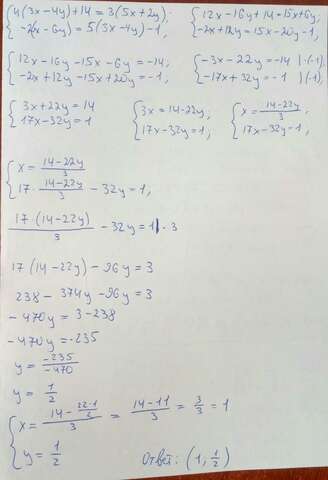 { 4(3x-4y)+14=3(5x+2y); { 12x-16y+14=15x+6y;
{ -2(x-6y)=5(3x-4y)-1, { -2x+12y=15x-20y-1,
{ 12x-16y-15x-6y=-14; { -3x-22y=-14 |·(-1),
{ -2x+12y-15x+20y=-1, { -17x+32y=-1 |·(-1),
{ 3x+22y=14 { 3x=14-22y; { x=\frac{14-22y}{3}
{ 17x-32y=1 { 17x-32y=1, { 17x-32y=1,
{ x=\frac{14-22y}{3}
{ 17·\frac{14-22y}{3}-32y=1,
\frac{17·(14-22y)}{3}-32y=1|·3
17(14-22y)-96y=3
238-374y-96y=3
-470y=3-238
-470y=-235
y=\frac{-235}{-470}
y=\frac{1}{2}
{ x=\frac{14-\frac{22·1}{2}}{3}=\frac{14-11}{3}=\frac{3}{3}=1
{ y=\frac{1}{2} Ответ: (1, \frac{1}{2})